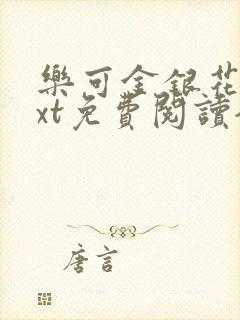 樂可金銀花
xt免費閱讀
唐言